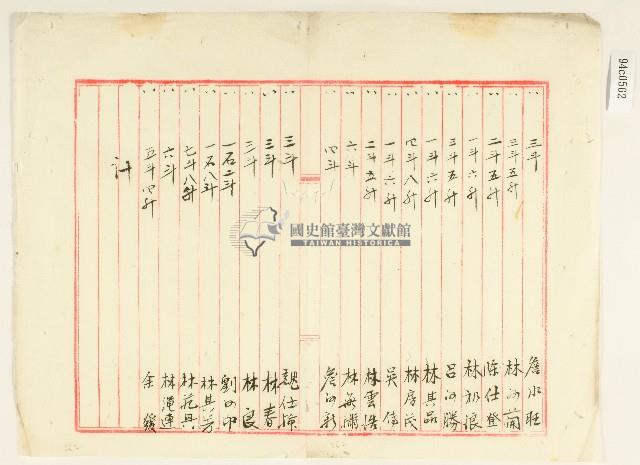 〃 三斗 詹水旺
〃 三斗五升 林阿蘭
〃 二斗五升 徐仕登
〃 一斗六升 林初浪
〃 三斗五升 呂阿勝
〃 一斗六升 林其品
〃 四斗八升 林房茂
〃 一斗六升 吳
〃 二斗五升 林雲浩
〃 六斗 林
〃 四斗 詹阿新
〃 三斗 魏仕
〃 三斗 林春
〃 三斗 林良
〃 一石二斗 劉四印
〃 一石八斗 林其芳
〃 七斗八升 林苑興
〃 六斗 林連
〃 五斗四升 余
計
國史館臺灣文獻館
TAIWAN HISTORICA
94c0562